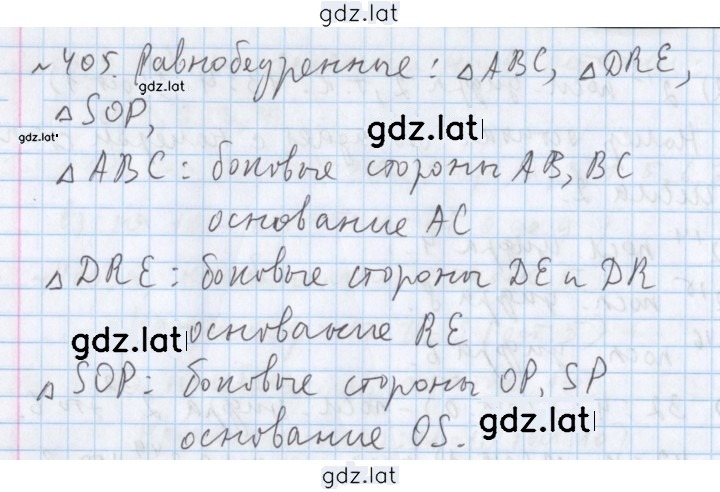 gdz.lat
№405. Равнобедренные: △ABC, △DRE,
gdz.lat
△SOP,
gdz.lat
gdz.lat
△ABC: боковые стороны AB, BC
основание AC
△DRE: боковые стороны DE и DR
gdz.lat
основание RE
△SOP: боковые стороны OP, SP
gdz.lat
основание OS.
gdz.lat